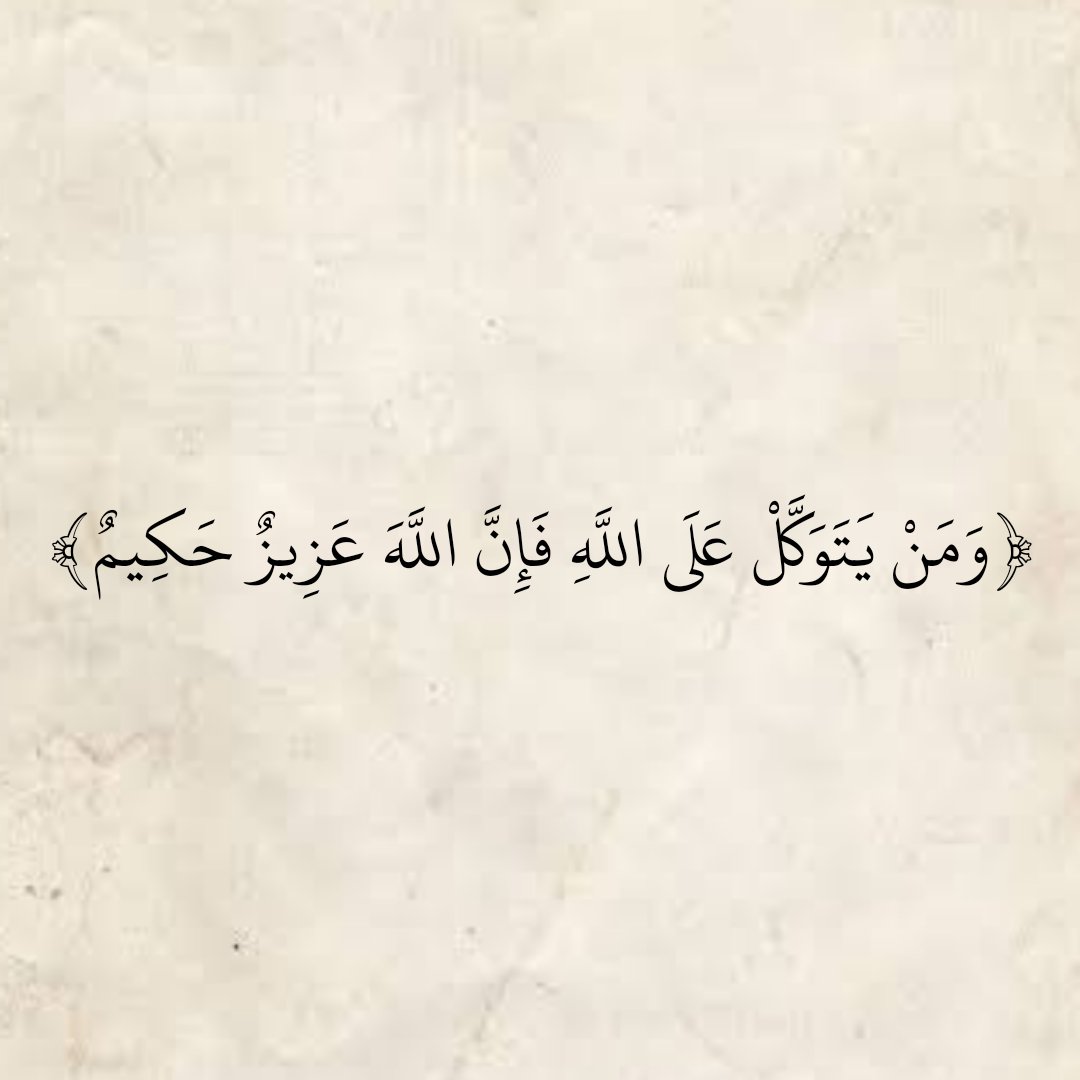 ﴿وَمَنْ يَتَوَكَّلْ عَلَى اللَّهِ فَإِنَّ اللَّهَ عَزِيزٌ حَكِيمٌ﴾